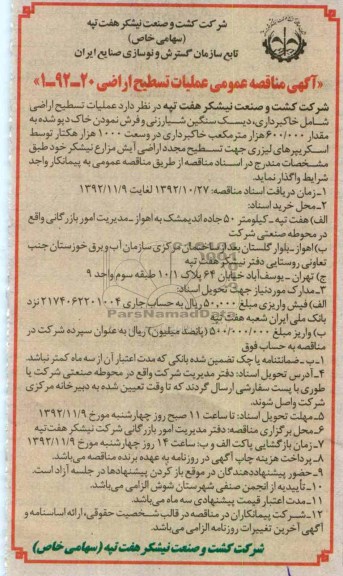 شرکت کشت و صنعت نیشکر هفت تپه
(سهامی خاص)
تابع سازمان گسترش و نوسازی صنایع ایران
«آگهی مناقصه عمومی عملیات تسطیح اراضی ۲۰-۹۲-۱»
شرکت کشت و صنعت نیشکر هفت تپه در نظر دارد عملیات تسطیح اراضی
شامل خاکبرداری، دیسک سنگین شیارزنی و فرش نمودن خاک دپو شده به
مقدار ۶۰۰/۰۰۰ هزار مترمکعب خاکبرداری در وسعت ۱۰۰۰ هزار هکتار توسط
اسکریپرهای لیزری جهت تسطیح مجدد اراضی آیش مزارع نیشکر خود طبق
مشخصات مندرج در اسناد مناقصه از طریق مناقصه عمومی به پیمانکار واجد
شرایط واگذار نماید.
۱-زمان دریافت اسناد مناقصه: ۱۳۹۲/۱۰/۲۷ لغایت ۱۳۹۲/۱۱/۹
۲-محل خرید اسناد:
الف) هفت تپه -کیلومتر ۵۰ جاده اندیمشک به اهواز -مدیریت امور بازرگانی واقع
در محوطه صنعتی شرکت
ب)اهواز -بلوار گلستان بعد از ساختمان مرکزی سازمان آب و برق خوزستان جنب
تعاونی روستایی دفتر نیشکر هفت تپه
ج) تهران - یوسف آباد خیابان ۶۴ پلاک ۱۰/۱ طبقه سوم واحد ۹
۳-مدارک مورد نیاز جهت تحویل اسناد:
الف) فیش واریزی مبلغ ۵۰.۰۰۰ ریال به حساب جاری ۲۱۷۴۰۶۲۲۰۱۰۰۴ نزد
بانک ملی ایران شعبه هفت تپه
ب) واریز مبلغ ۵۰۰/۰۰۰/۰۰۰ (پانصد میلیون) ریال به عنوان سپرده شرکت در
مناقصه به حساب فوق
۱-ب-ضمانتنامه یا چک تضمین شده بانکی که مدت اعتبار آن از سه ماه کمتر نباشد.
۴-آدرس تحویل اسناد: دفتر مدیریت شرکت واقع در محوطه صنعتی شرکت یا
طوری با پست سفارشی ارسال گردند که تا وقت تعیین شده به دبیرخانه مرکزی
شرکت واصل شوند.
۵-مهلت تحویل اسناد: تا ساعت ۱۱ صبح روز چهارشنبه مورخ ۱۳۹۲/۱۱/۹
۶-محل برگزاری مناقصه: دفتر مدیریت امور بازرگانی شرکت نیشکر هفت تپه
۷-زمان بازگشایی پاکت الف و ب: ساعت ۱۴ روز چهارشنبه مورخ ۱۳۹۲/۱۱/۹
۸-پرداخت هزینه چاپ آگهی در روزنامه به عهده برنده مناقصه می‌باشد.
۹-حضور پیشنهاددهندگان در موقع باز کردن پیشنهادها در جلسه آزاد است.
۱۰-تأییدیه از انجمن صنفی شهرستان شوش الزامی می‌باشد.
۱۱-مدت اعتبار قیمت پیشنهادی سه ماه می‌باشد.
۱۲-شرکت پیمانکاران در مناقصه در قالب شخصیت حقوقی، ارائه اساسنامه و
آگهی آخرین تغییرات روزنامه الزامی می‌باشد.
شرکت کشت و صنعت نیشکر هفت تپه (سهامی خاص)